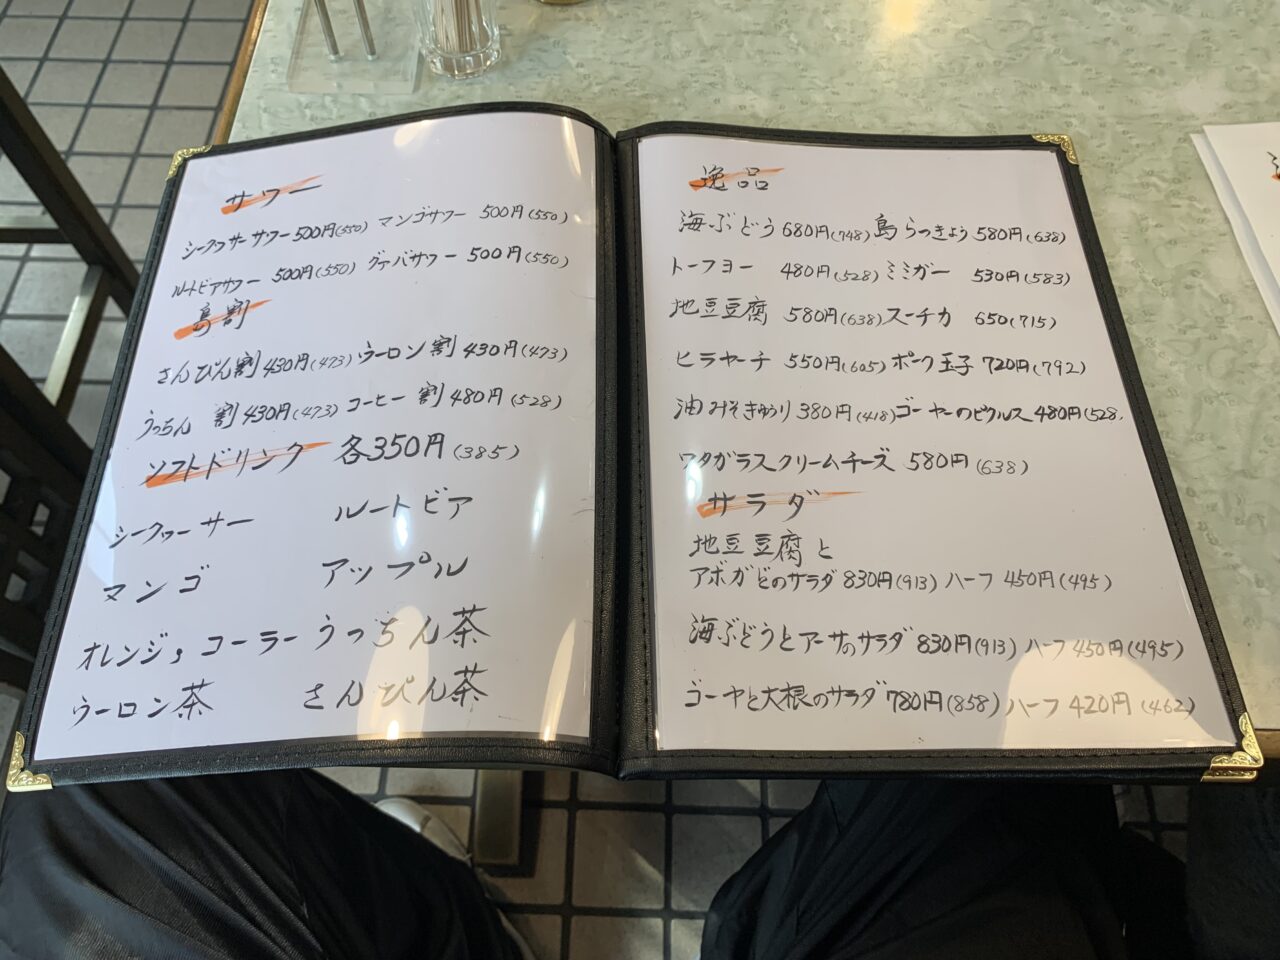 サワー
シークヮーサーサワー 500円(550) マンゴサワー 500円(550)
ルートビアサワー 500円(550) グァバサワー 500円(550)
島割
さんぴん割 430円(473) ウーロン割 430円(473)
うっちん割 430円(473) コーヒー割 480円(528)
ソフトドリンク 各350円(385)
シークヮーサー ルートビア
マンゴ アップル
オレンジ, コーラー うっちん茶
ウーロン茶 さんぴん茶
逸品
海ぶどう 680円(748) 島らっきょう 580円(638)
トーフヨー 480円(528) ミミガー 530円(583)
地豆豆腐 580円(638) スーチカ 650(715)
ヒラヤーチ 550円(605) ポーク玉子 720円(792)
油みそきゅうり 380円(418) ゴーヤーのピクルス 480円(528.
ワタガラスクリームチーズ 580円(638)
サラダ
地豆豆腐と
アボガドのサラダ 830円(913) ハーフ 450円(495)
海ぶどうとアーサのサラダ 830円(913) ハーフ 450円(495)
ゴーヤと大根のサラダ 780円(858) ハーフ 420円(462)